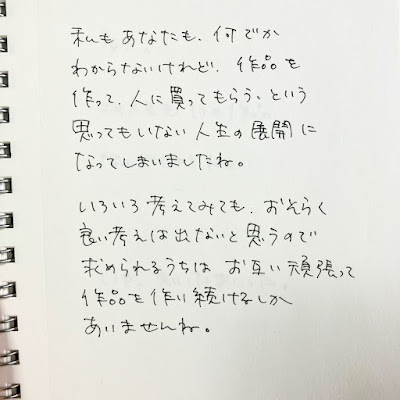 私もあなたも、何でか
わからないけれど、作品を
作って、人に買ってもらう、という
思ってもいない人生の展開に
なってしまいましたね。
いろいろ考えてみても、おそらく
良い考えは出ないと思うので
求められるうちは お互い頑張って
作品を作り続けるしか
ありませんね。